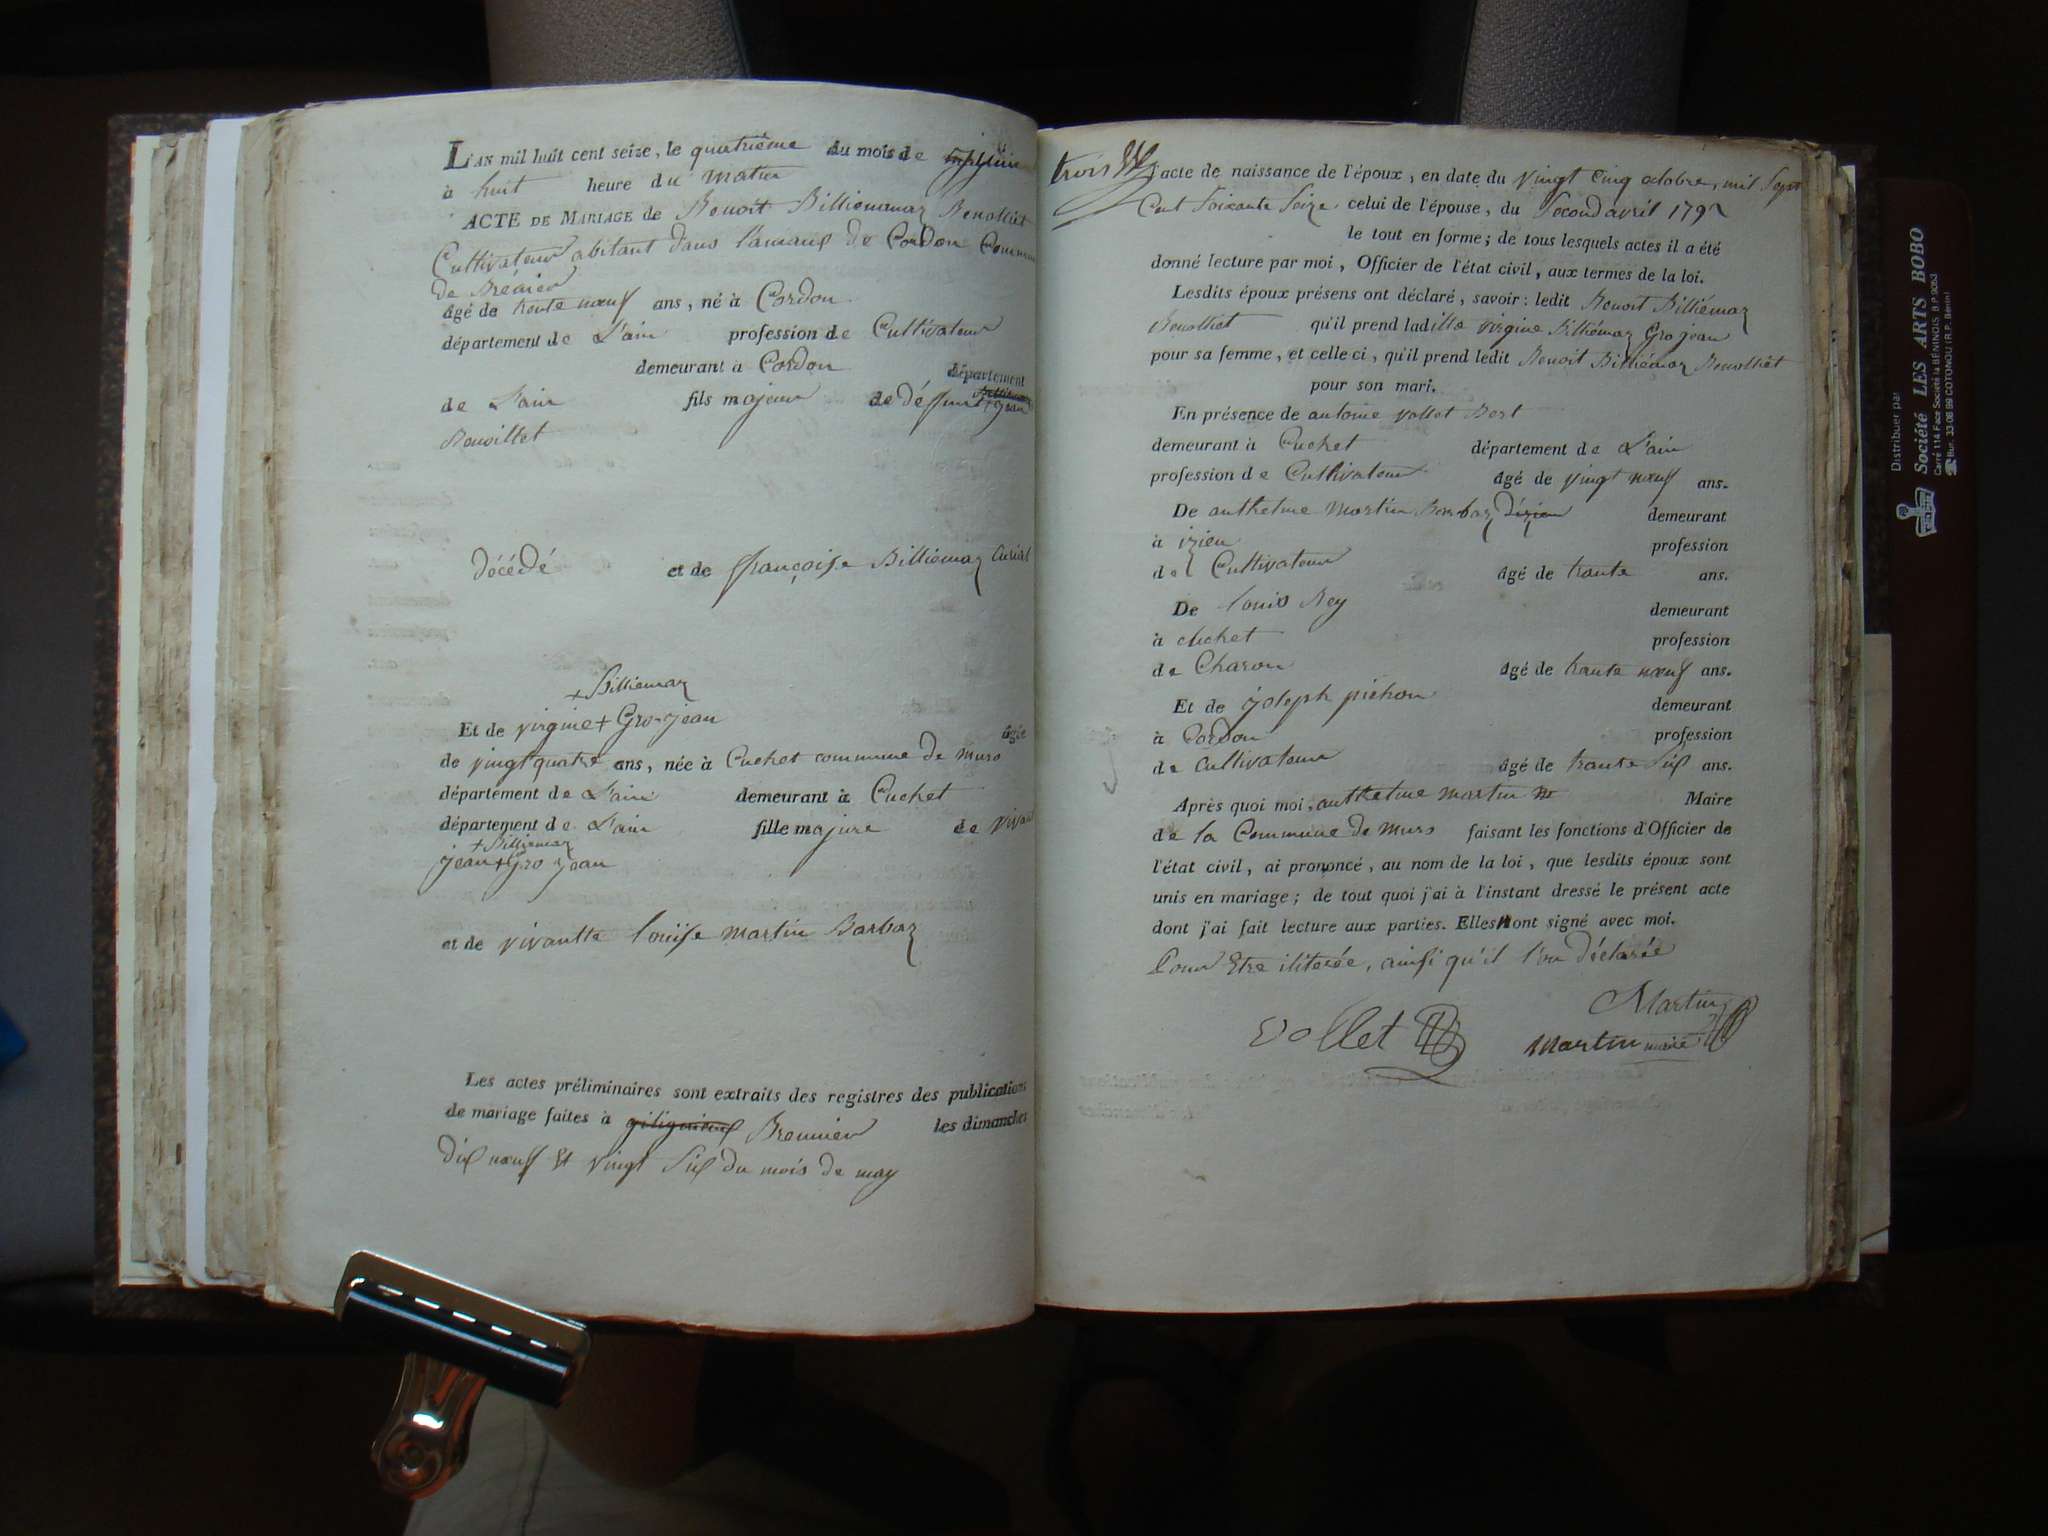 L'AN mil huit cent seize, le quatrième du mois de
à huit heure du matin
ACTE DE MARIAGE de Benoit Billiémaz Benolliet
Cultivateur abitant dans l'amaus de Cordon Commune
de Brénier
âgé de trante nœuf ans, né à Cordon
département de L'ain profession de Cultivateur
demeurant à Cordon département
de L'ain fils majeur de déffunt jean
Benoillet
décédé et de françoise Billiémaz Curial
+ Billiemaz
Et de virgine + Gro-jean âgée
de vingt quatre ans, née à Cuchet commune de murs
département de L'ain demeurant à Cuchet
département de L'ain fille majure de vivant
+ Billiemaz
jean + Gro jean
et de vivantte louise martin Barbaz
Les actes préliminaires sont extraits des registres des publications
de mariage faites à Brennier les dimanches
dix nœuf et vingt six du mois de may
trois
l'acte de naissance de l'époux, en date du vingt cinq octobre, mil sept
Cent soixante seize, celui de l'épouse, du second avril 1792
le tout en forme; de tous lesquels actes il a été
donné lecture par moi, Officier de l'état civil, aux termes de la loi.
Lesdits époux présens ont déclaré, savoir: ledit Benoit Billiémaz
Benolliet qu'il prend laditte virgine Billiémaz Gro jean
pour sa femme, et celle ci, qu'il prend ledit Benoit Billiémaz Benolliet
pour son mari.
En présence de antoine vollet Bert
demeurant à Cuchet département de L'ain
profession de Cultivateur âgé de vingt nœuf ans.
De anthelme martin Barbaz dizieu demeurant
à izieu profession
de Cultivateur âgé de trante ans.
De louis Rey demeurant
à cuchet profession
de Charon âgé de trante nœuf ans.
Et de joseph pichon demeurant
à Cordon profession
de Cultivateur âgé de trante six ans.
Après quoi moi, anthelme martin Maire
de la Commune de murs faisant les fonctions d'Officier de
l'état civil, ai prononcé, au nom de la loi, que lesdits époux sont
unis en mariage; de tout quoi j'ai à l'instant dressé le présent acte
dont j'ai fait lecture aux parties. Elles n'ont signé avec moi.
Pour Etre iliterée, ainsi qu'il l'on déclarée
Martin
vollet martin maire
Distribuer par
Société LES ARTS BOBO
Carré 114 Face Société la BÉNINOIS B.P. 9053
Bur. 33-06 99 COTONOU (R.P. Bénin)